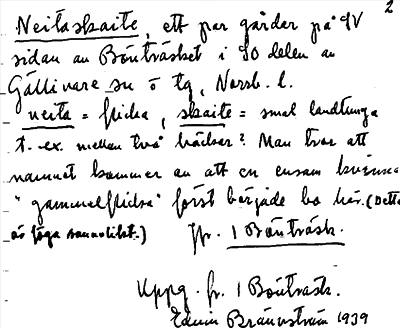 2
Neitaskaite, ett par gårdar på NV
sidan av Bönträsket i SO delen av
Gällivare sn o tg, Norrb. l.
neita = flicka, skaite = smal landtunga
t. ex. mellan två bäckar? Man tror att
namnet kommer av att en ensam kvinna
"gammelflicka" först började bo här. (Detta
är föga sannolikt.) Jfr. 1 Bönträsk.
Uppg. fr. 1 Bönträsk.
Edvin Brännström 1939